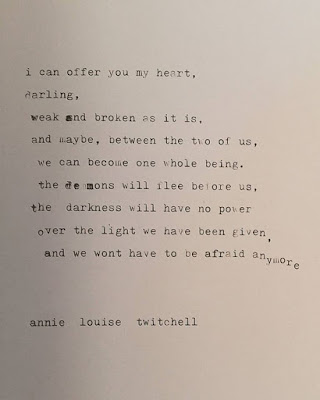 i can offer you my heart,
darling,
weak and broken as it is,
and maybe, between the two of us,
we can become one whole being.
the demons will flee before us,
the darkness will have no power
over the light we have been given,
and we wont have to be afraid anymore
annie louise twitchell